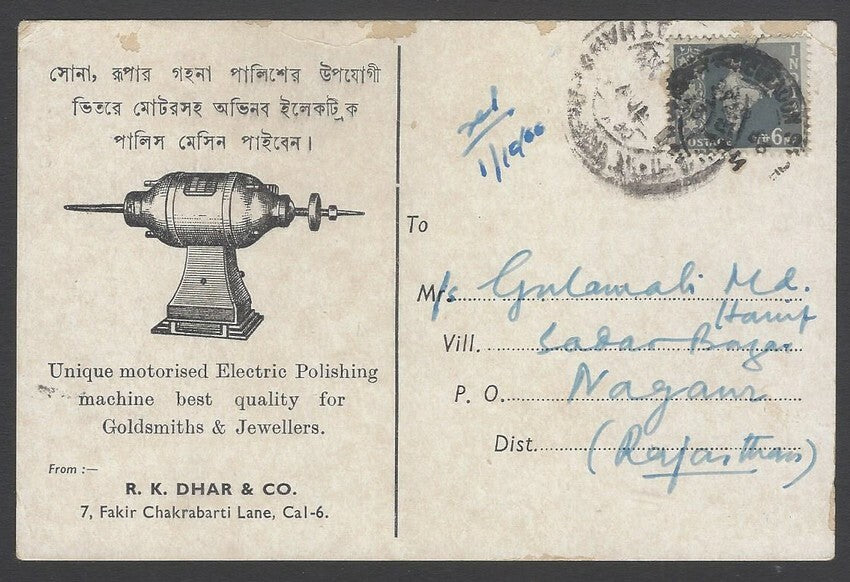 সোনা, রূপার গহনা পালিশের উপযোগী
ভিতরে মোটরসহ অভিনব ইলেকট্রিক
পালিস মেসিন পাইবেন।
Unique motorised Electric Polishing
machine best quality for
Goldsmiths & Jewellers.
From :—
R. K. DHAR & CO.
7, Fakir Chakrabarti Lane, Cal-6.
To
Mr/s Gulamali Md.
Hanif
Vill. Sadar Bazar
P. O. Nagaur
Dist. (Rajasthan)